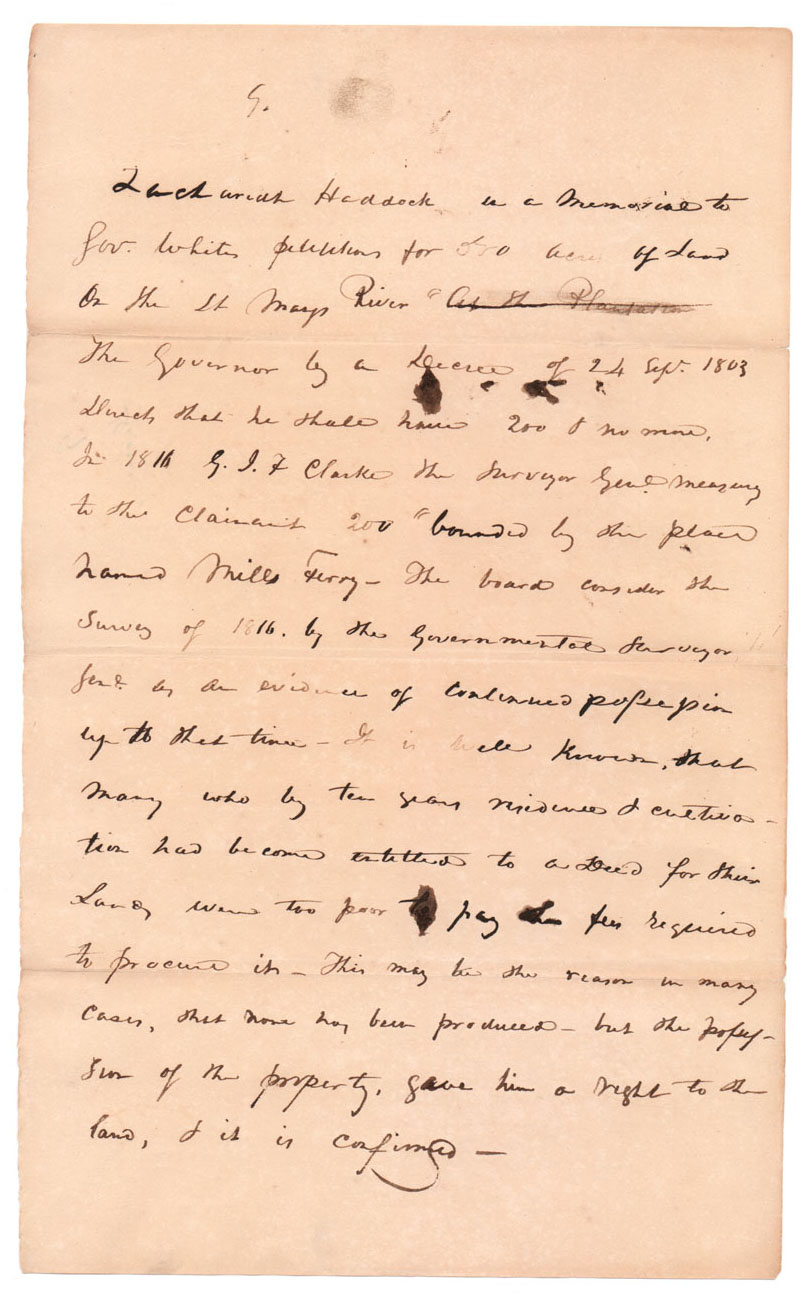 G.
Zachariah Haddock in a Memorial to
Gov. White petitions for acres of Land
On the St Marys River "At the Plantation
The Governor by a Decree of 24 Sepr. 1803
Directs that he shall have 200 & no more.
In 1816 G. I. F Clarke the Surveyor Genl. measures
to the Claimant 200 "bounded by the place
named Mills Ferry - The board consider the
Survey of 1816. by the Governmental Surveyor
Genl. as an evidence of continued possession
up to that time - It is well known, that
many who by ten years residence & cultiva-
tion had become entitled to a Deed for their
Lands were too poor to pay the fees required
to procure it - This may be the reason in many
Cases, that none has been produced - but the posses-
sion of the property, gave him a right to the
land, & it is confirmed -